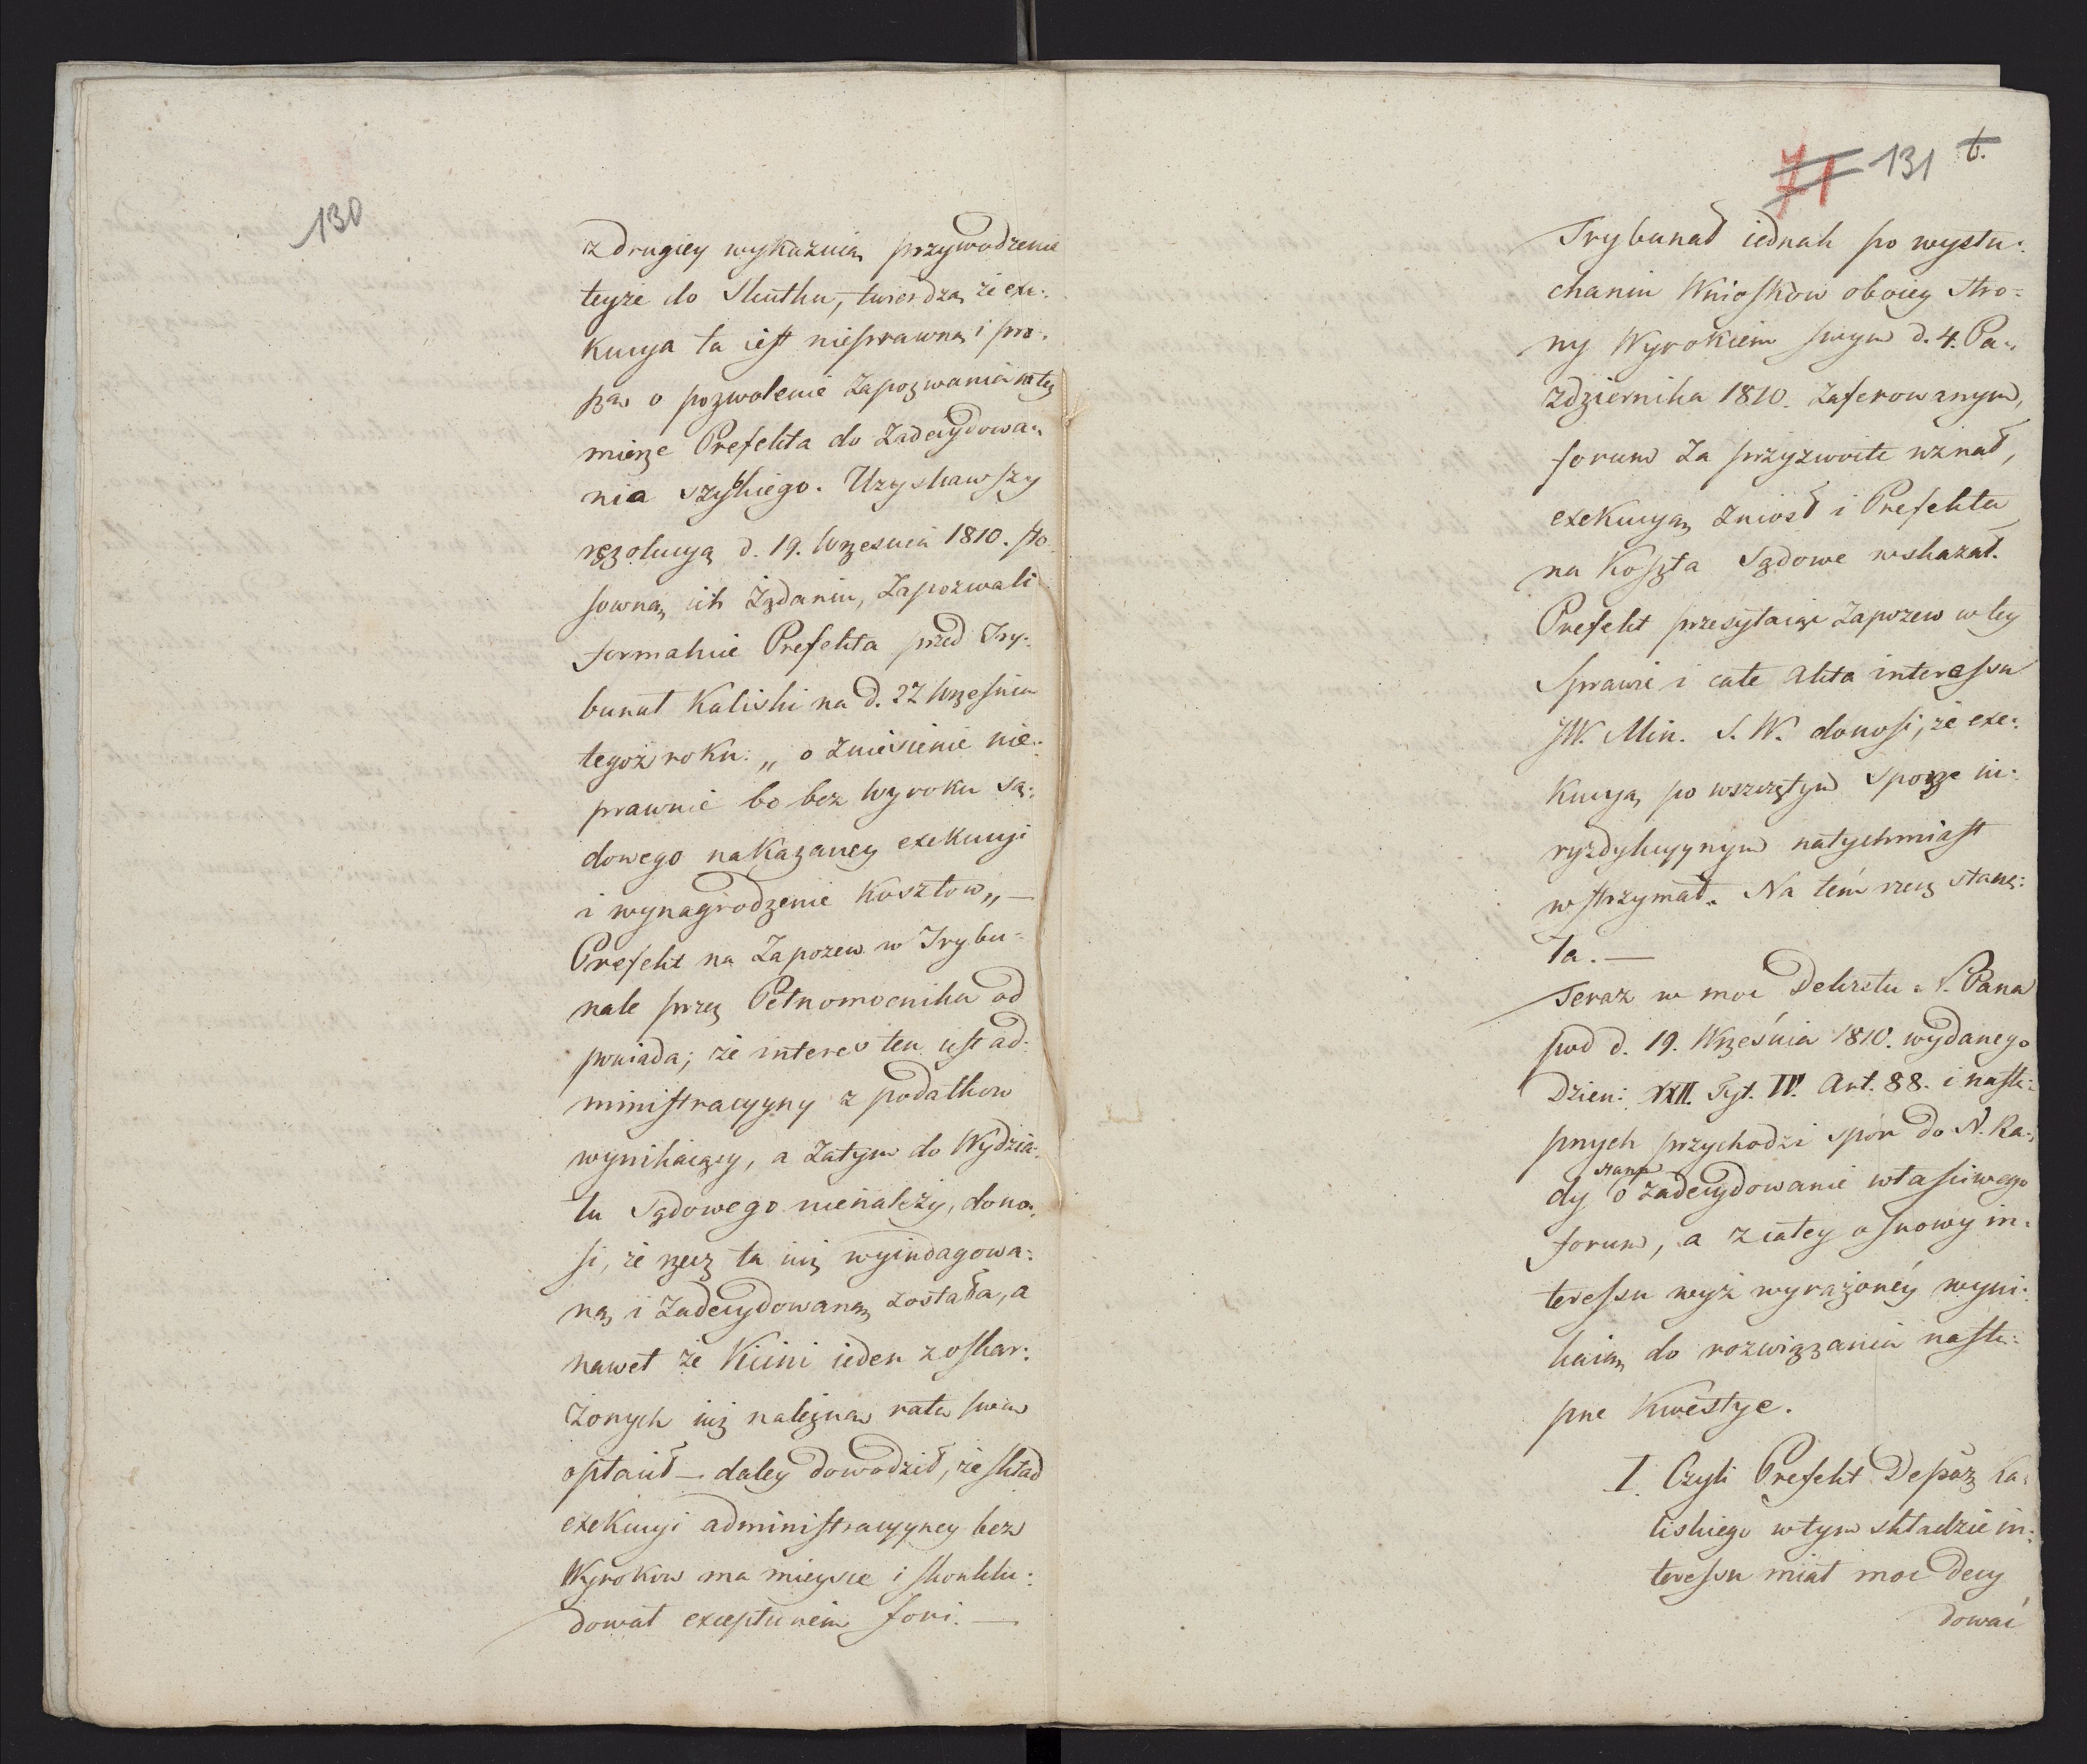 130
z drugiey wykaźnią przywodzenie
teyże do Skutku, twierdzą, że exe:
kucya ta iest nieprawną i pro:
szą o pozwolenie Zapozwania w tey
mierze Prefekta do Zadecydowa:
nia szybkiego. Uzyskawszy
rezolucyą d. 19. Września 1810. sto
sowną ich Żądaniu, Zapozwali
formalnie Prefekta przed Try:
bunał Kaliski na d. 27 Września
tegoż roku: „ o Zniesienie nie:
prawnie bo bez Wyroku Są:
dowego nakazaney exekucyi
i wynagrodzenie Kosztow„ —
Prefekt na Zapozew w Trybu:
nale przez Pełnomocnika od
powiada; że interes ten iest ad:
ministracyyny z podatkow
wynikaiący, a Zatym do Wydzia:
łu Sądowego nienależy, dono:
si, że rzecz ta iuż wyindagowa:
ną i Zadecydowaną została, a
nawet że Kicini ieden z oskar:
żonych iuż należną ratę swą
opłacił — daley dowodził, że skład
exekucyi administracyyney bez
Wyrokow ma mieysce i skonklu:
dował exceptionem fori. —
71 131 6.
Trybunał iednak po wysłu:
chaniu Wnioskow oboiey Stro:
ny Wyrokiem swym d. 4. Pa:
zdziernika 1810. Zaferowanym,
forum Za przyzwoite uznał,
exekucyą Zniosł i Prefekta
na Koszta Sądowe wskazał.
Prefekt przesyłaiąc Zapozew w tey
Sprawie i całe Akta interessu
JW. Min. S. W. donosi, że exe:
kucyą po wszczętym Sporze iu:
ryzdykcyynym natychmiast
wstrzymał. Na tém rzecz stanę:
ła. —
Teraz w moc Dekretu N. Pana
pod d. 19. Września 1810. wydanego
Dzien: XXII. Tyt. IV. Art. 88. i nastę:
pnych przychodzi spór do N. Ra:
stanu
dy o zadecydowanie własciwego
forum, a z całey osnowy in:
teressu wyż wyrażonéy wyni:
kaią do rozwiązania nastę:
pne Kwestye.
I. Czyli Prefekt Depar Ka:
liskiego w tym składzie in:
teressu miał moc decy
dować